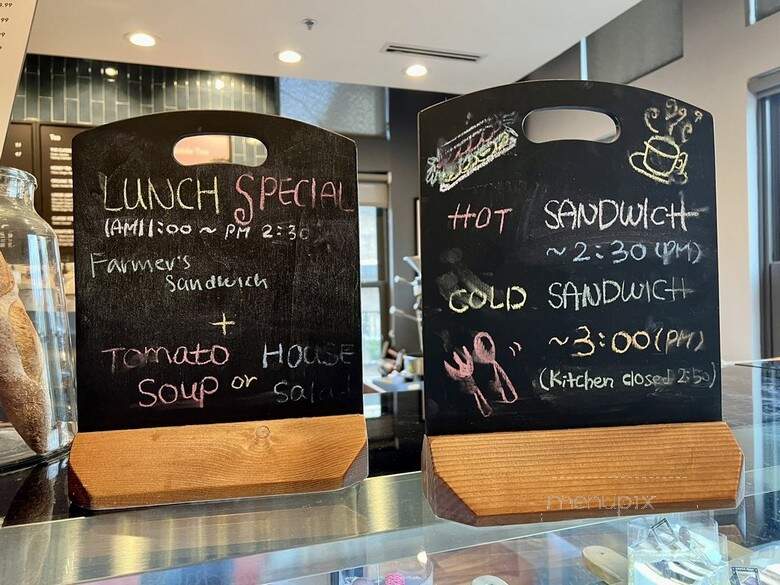 LUNCH SPECIAL
(AM)11:00 ~ PM 2:30
Farmer's
Sandwich
+
Tomato
Soup or
House
Salad
HOT SANDWICH
~ 2:30 (PM)
COLD SANDWICH
~ 3:00 (PM)
(Kitchen closed 2:50)
menupix